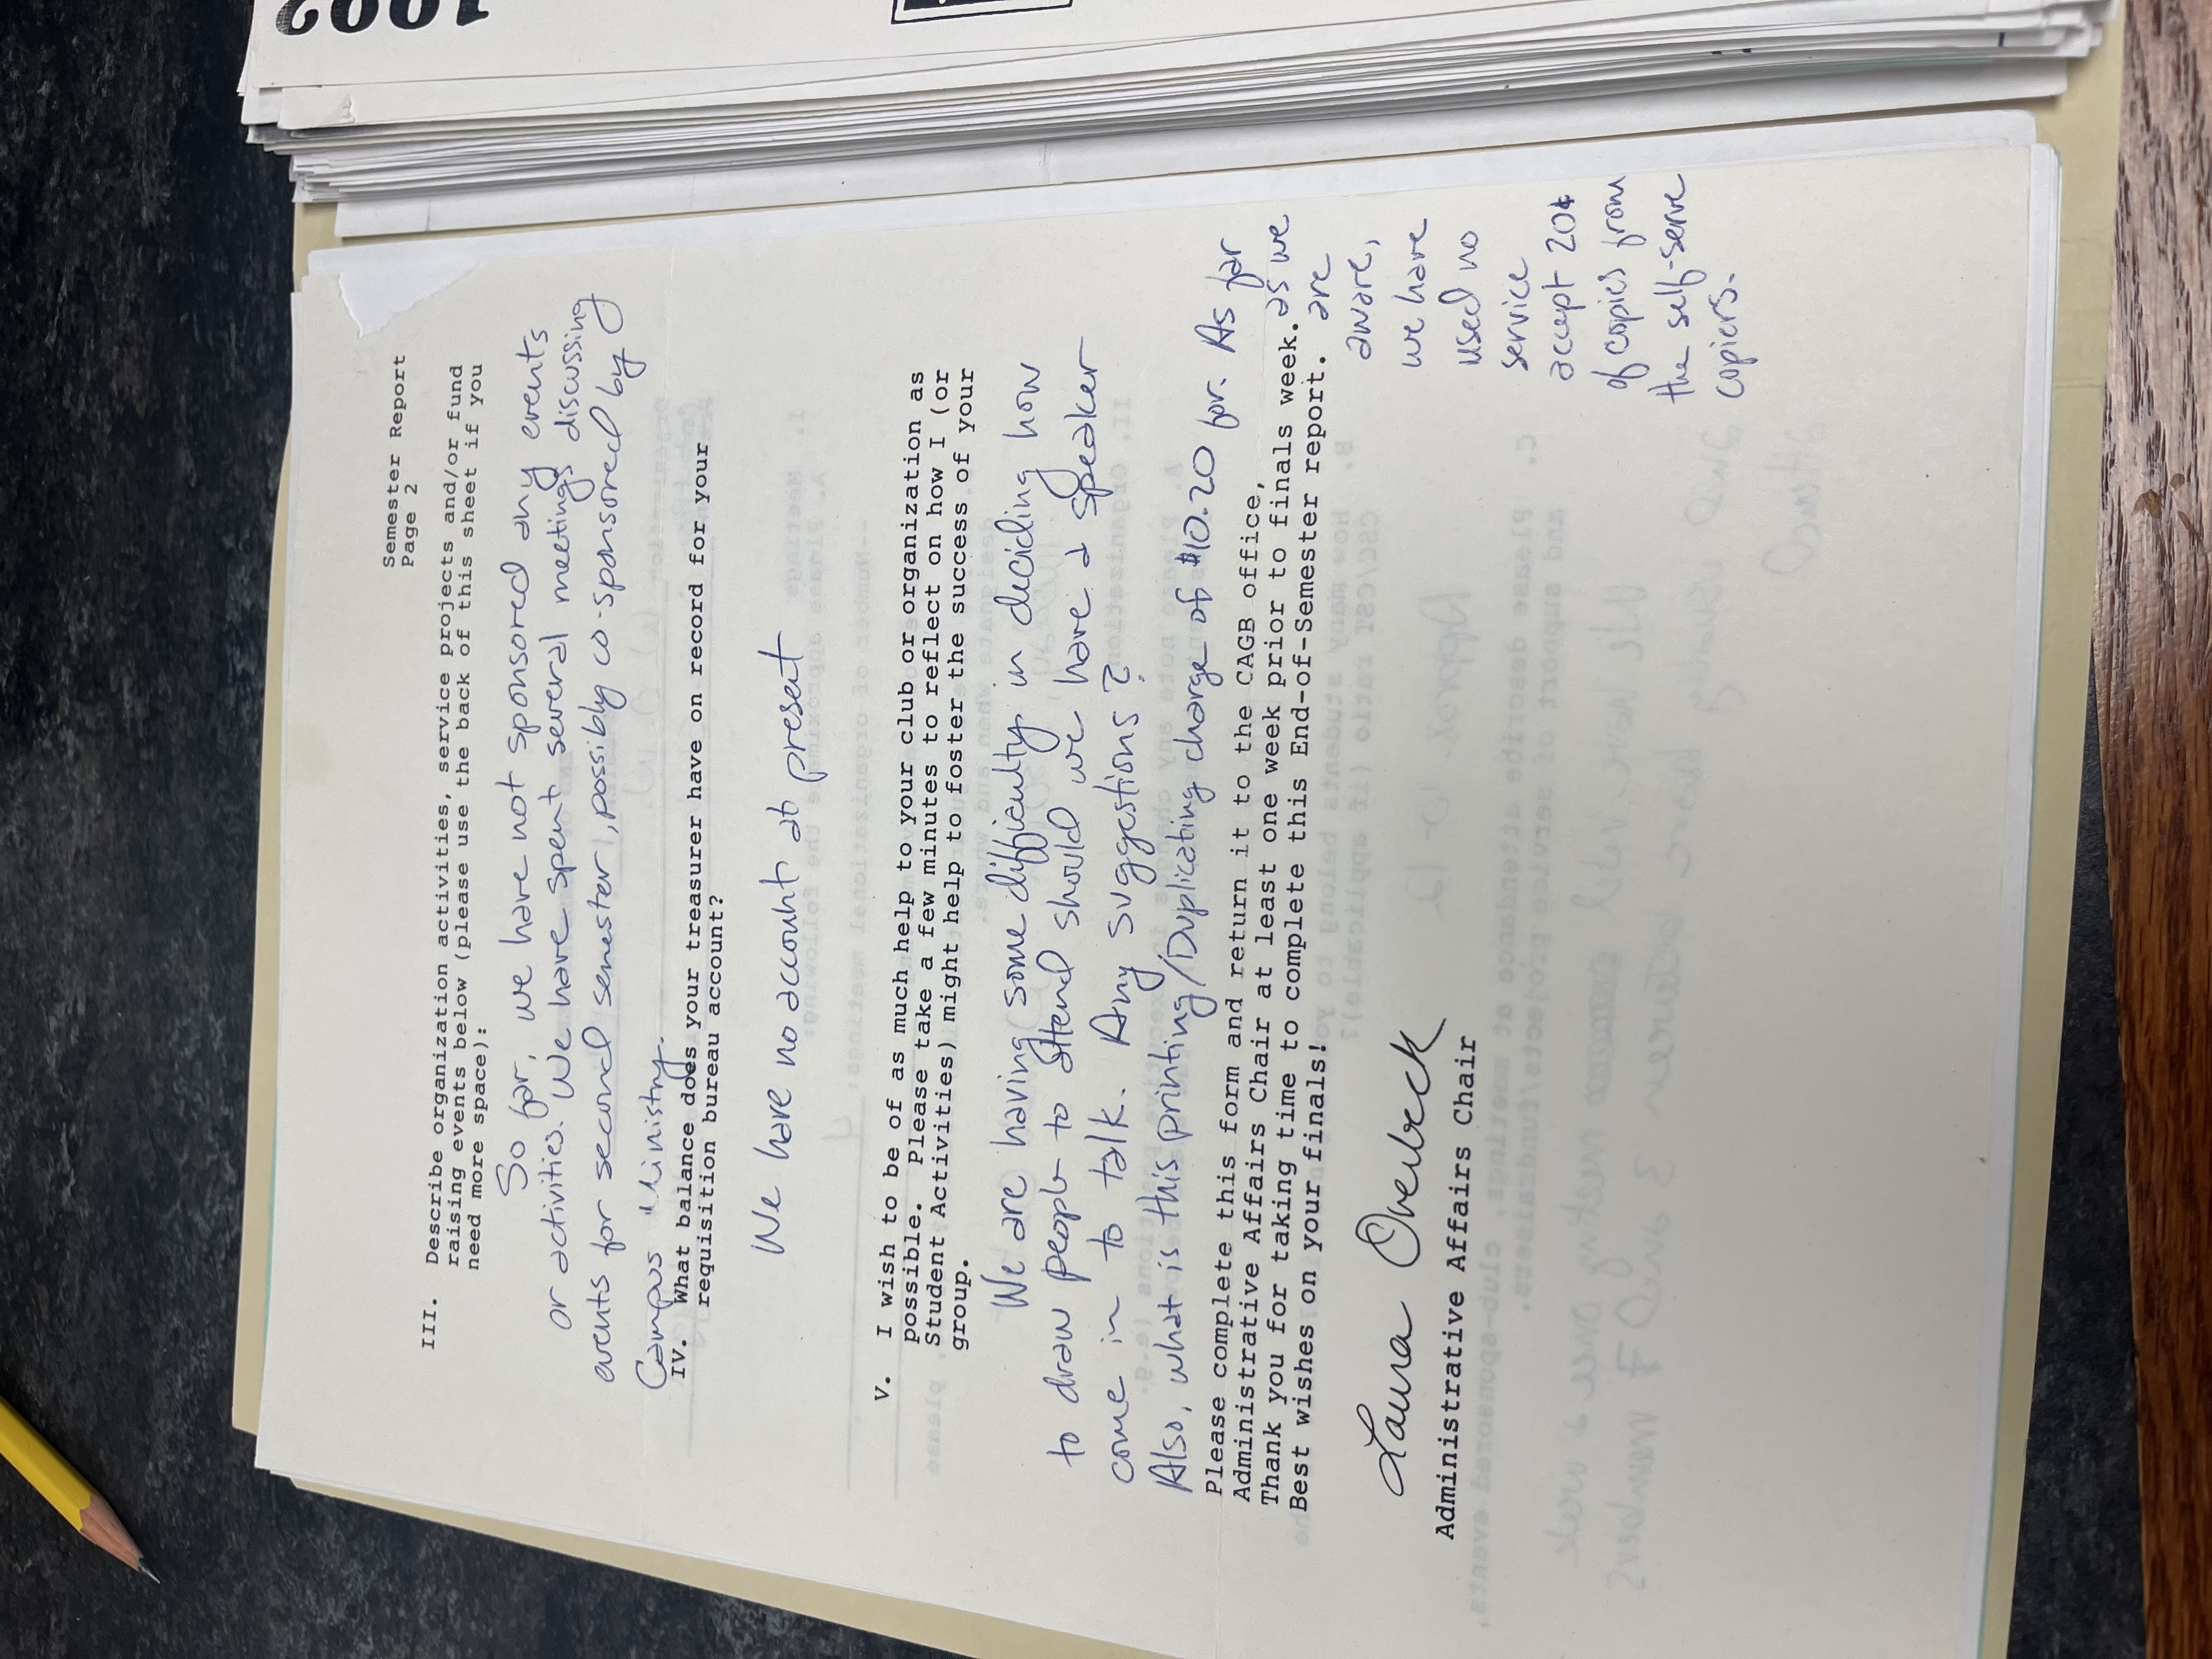 Semester Report
Page 2
III. Describe organization activities, service projects and/or fund
raising events below (please use the back of this sheet if you
need more space):
So far, we have not sponsored any events
or activities. We have spent several meetings discussing
events for second semester, possibly co-sponsored by
Campus Ministry.
IV. What balance does your treasurer have on record for your
requisition bureau account?
We have no account at present
V. I wish to be of as much help to your club or organization as
possible. Please take a few minutes to reflect on how I (or
Student Activities) might help to foster the success of your
group.
We are having some difficulty in deciding how
to draw people to attend should we have a speaker
come in to talk. Any suggestions?
Also, what is this printing/Duplicating charge of $10.20 for. As far
as we
are
aware,
we have
used no
service
accept 20¢
of copies from
the self-serve
copiers.
Please complete this form and return it to the CAGB office,
Administrative Affairs Chair at least one week prior to finals week.
Thank you for taking time to complete this End-of-Semester report.
Best wishes on your finals!
Laura Overbeck
Administrative Affairs Chair
1992